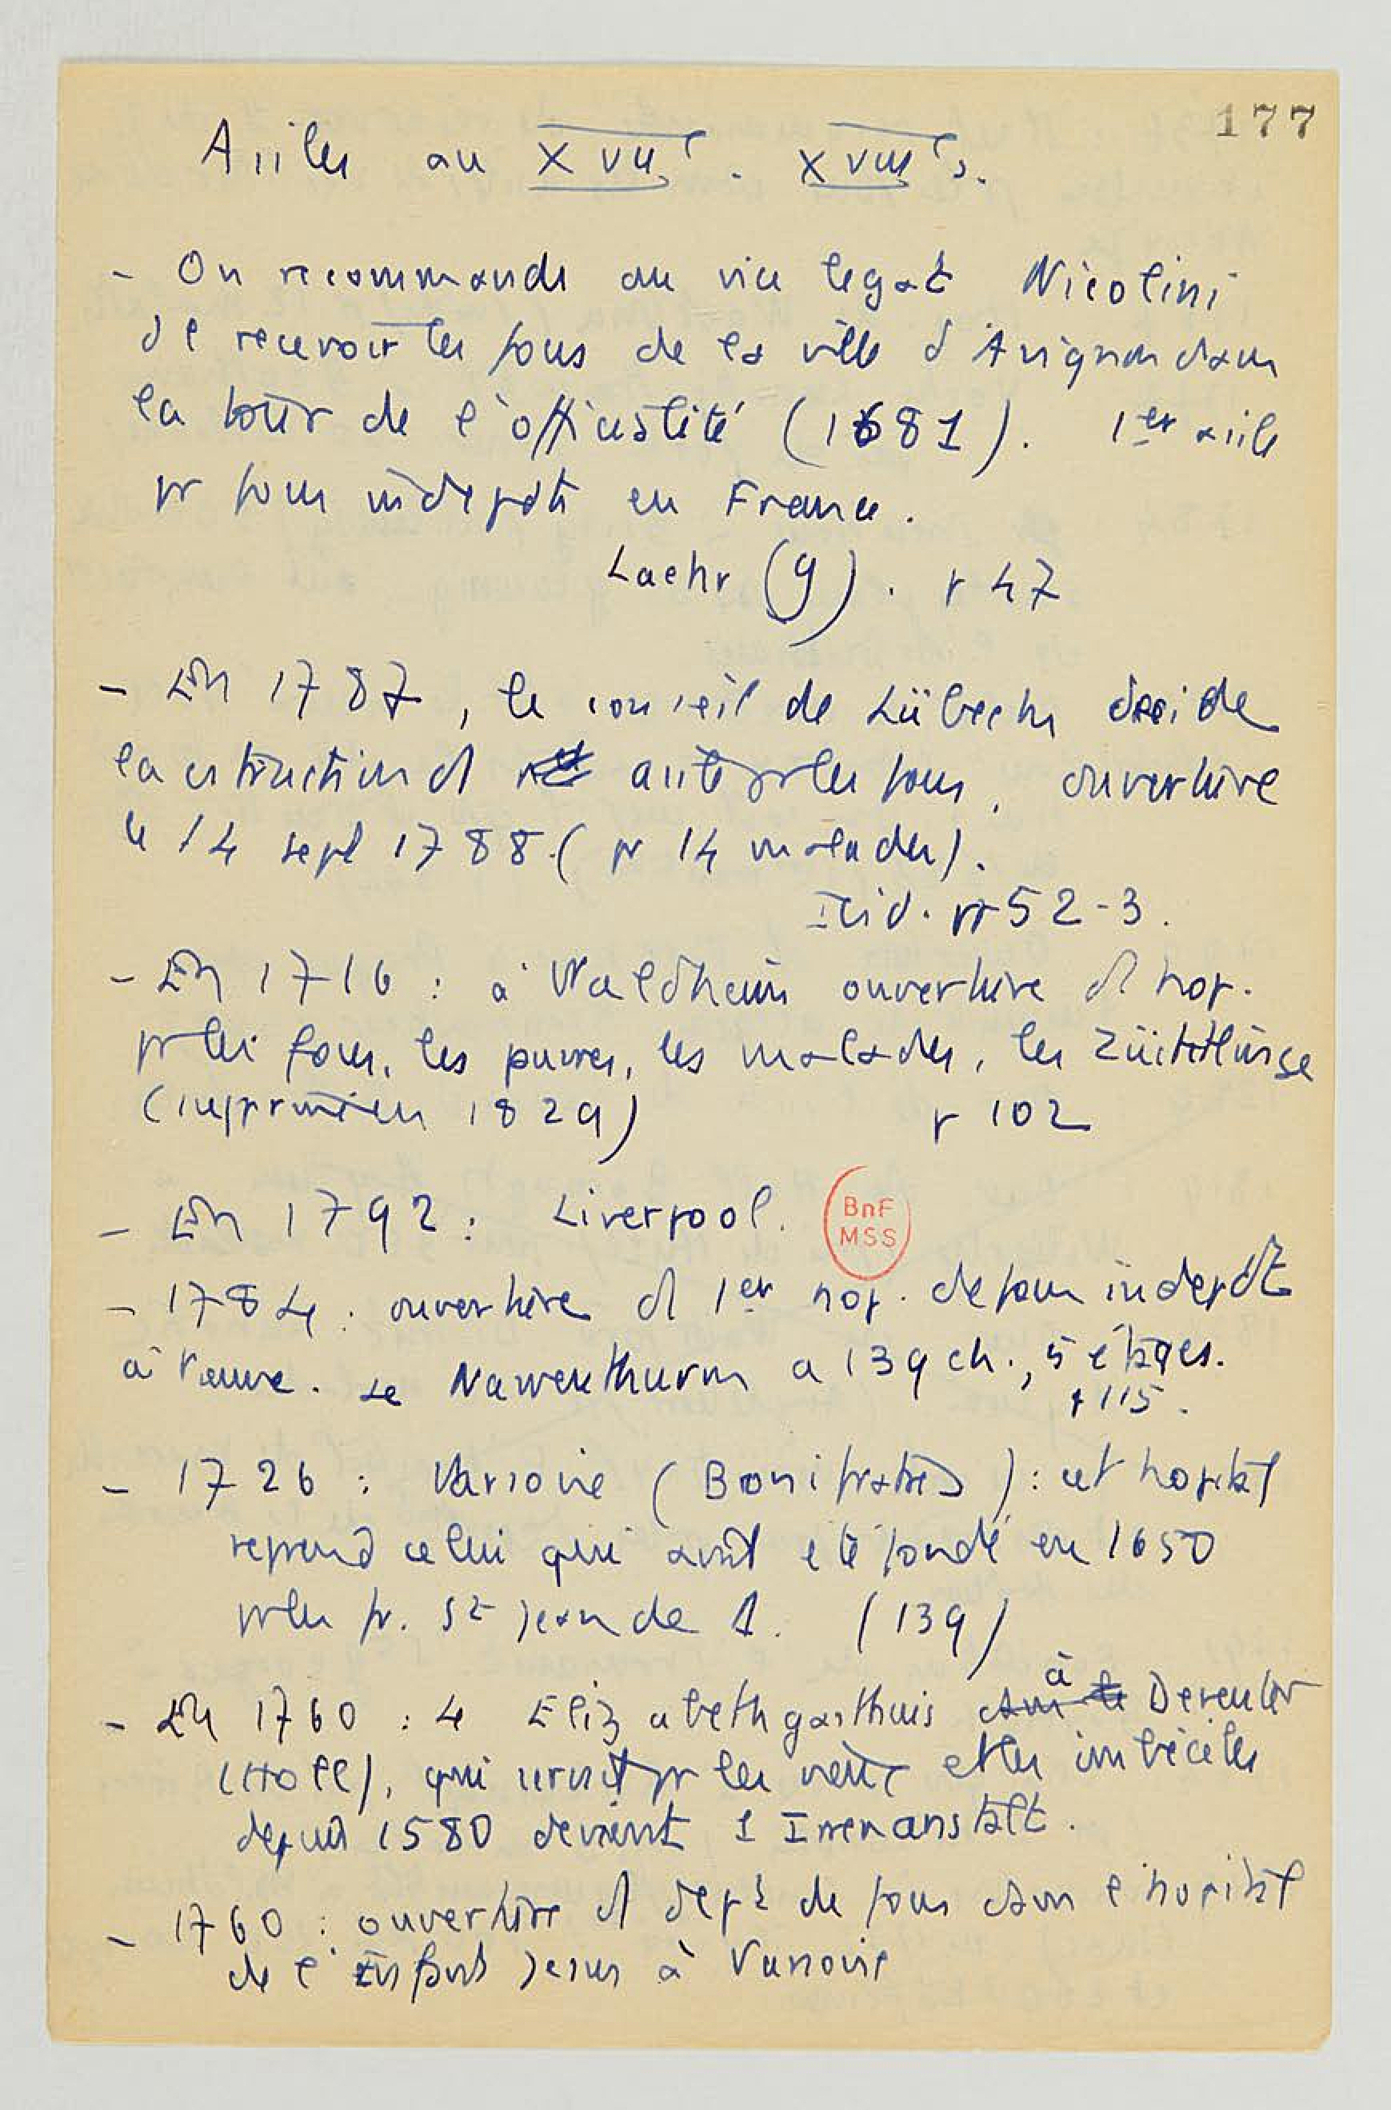 177
Asiles au XVIIe - XVIIIe s.
- On recommande au vice legat Nicolini
de recevoir les fous de la ville d'Avignon dans
la tour de l'officialité (1681). 1er asile
pr fous indepdts en France.
Laehr (g). p 47
- En 1787, le conseil de Lübeck decide
la cstruction d'1 asile pr les fous, ouverture
le 14 sept 1788. (pr 14 malades).
Ibid. pp 52-3.
- En 1716 : à Waldheim ouverture d'1 hop.
pr les fous, les pauvres, les malades, les Züchtlinge
(supprimé en 1829) p 102
- En 1792 : Liverpool.
BnF
MSS
- 1784 : ouverture d'1 1er hop. de fous indepdt
à Vienne. Le Narrenthurm a 139 ch., 5 étages.
p 115.
- 1726 : Varsovie (Bonifratres) : cet hopital
reprend celui qui avait été fondé en 1650
pr les fr. St Jean de D. (139)
- En 1760 : le Elizabethgasthuis à Deventer
(Holl), qui servait pr les vieux et les imbéciles
depuis 1580 devient 1 Irrenanstalt.
- 1760 : ouverture d'1 dept de fous dans l'hopital
de l'Enfant Jesus à Varsovie